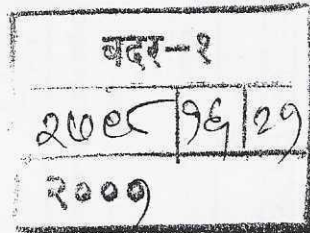 बदर-१
२७९८ १६ २१
२००१